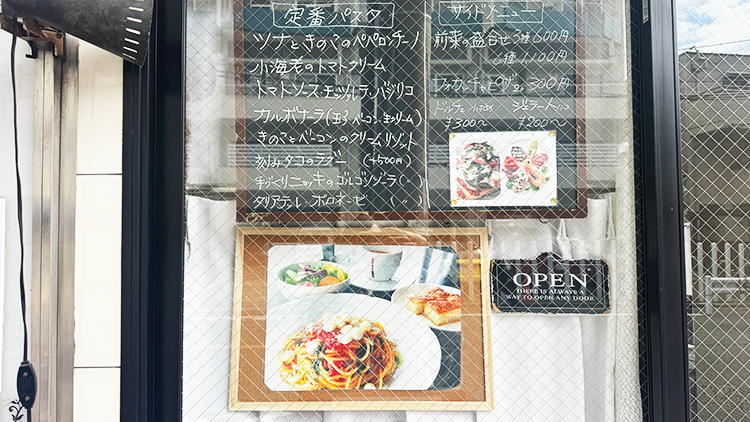 定番パスタ
ツナときのこのペペロンチーノ
小海老のトマトクリーム
トマトソース、モッツァレラ、バジリコ
カルボナーラ(玉子、ベーコン、生クリーム)
きのことベーコンのクリームリゾット
刻みタコのラグー (+500円)
手づくりニョッキのゴルゴンゾーラ( 〃 )
タリアテッレ ボロネーゼ ( 〃 )
サイドメニュー
前菜の盛合せ3種600円
6種1,100円
フォカッチャピザ 300円
ドルチェ
ジェラート
¥300〜
¥200〜
OPEN
THERE IS ALWAYS A
WAY TO OPEN ANY DOOR